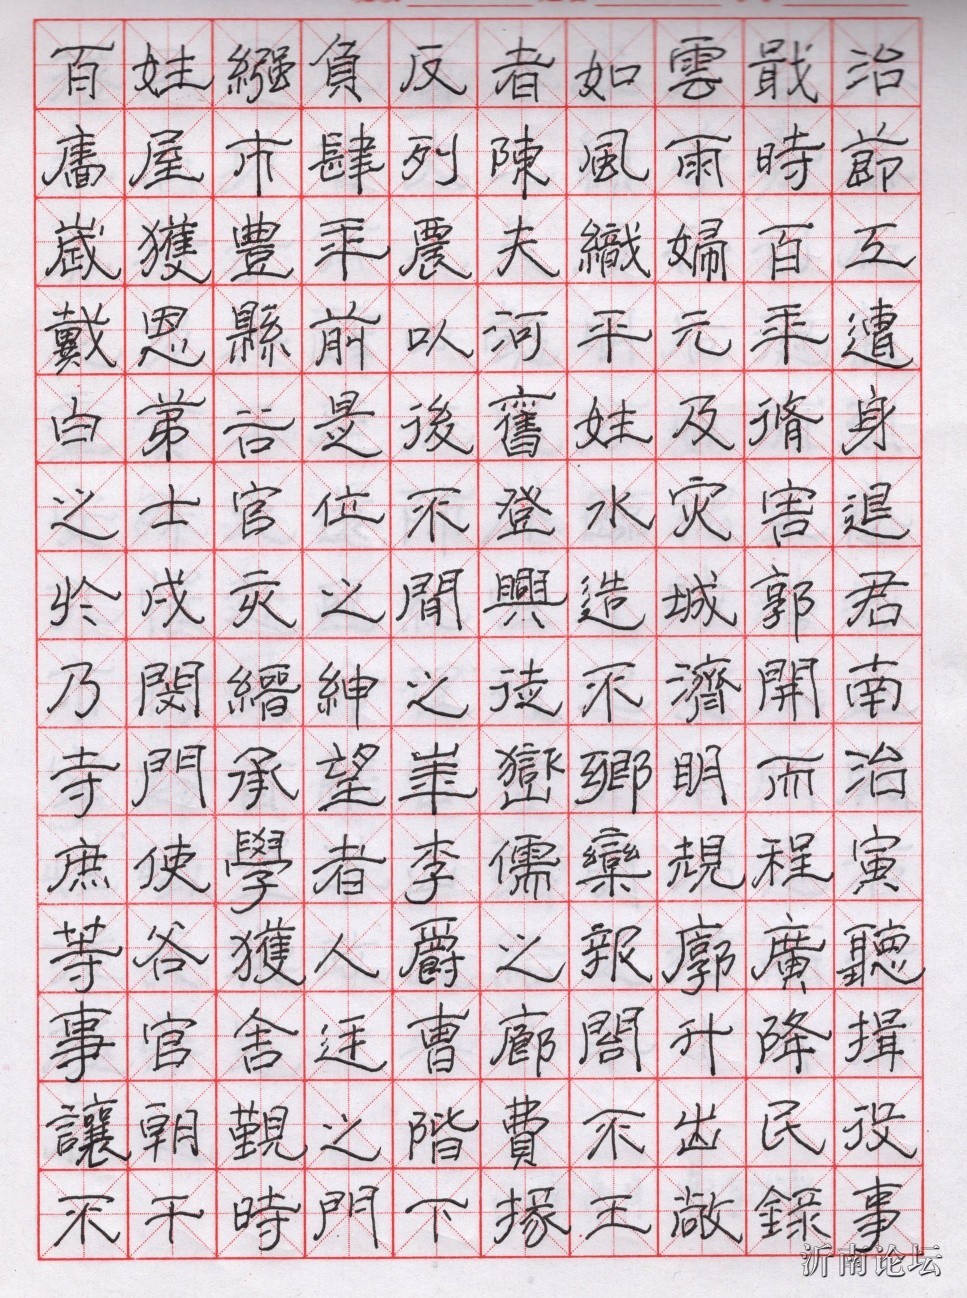 百姓繦負反者如雲戢治
廧屋市肆列陳風雨時節
歲獲豊年農夫織婦百工
戴恩縣前以河平元年遭
白茅谷是後舊姓及脩身
之士官位不登水災害退
於戌亥之間興造城郭君
乃閔縉紳之徒不濟開南
寺門承望華嶽鄉明而治
庶使學者李儒欒規程寅
等各獲人爵之報廓廣聽
事官舍廷曹廊閤升降揖
讓朝覲之階費不出民役
不干時門下掾王敞錄事
沂南论坛